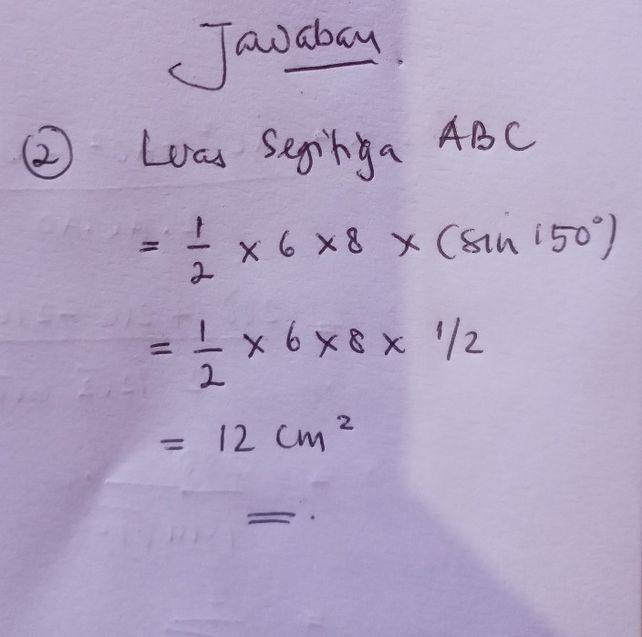 Jawaban.
② Luas Segitiga ABC
= 1/2 × 6 × 8 × (sin 150°)
= 1/2 × 6 × 8 × 1/2
= 12 cm²